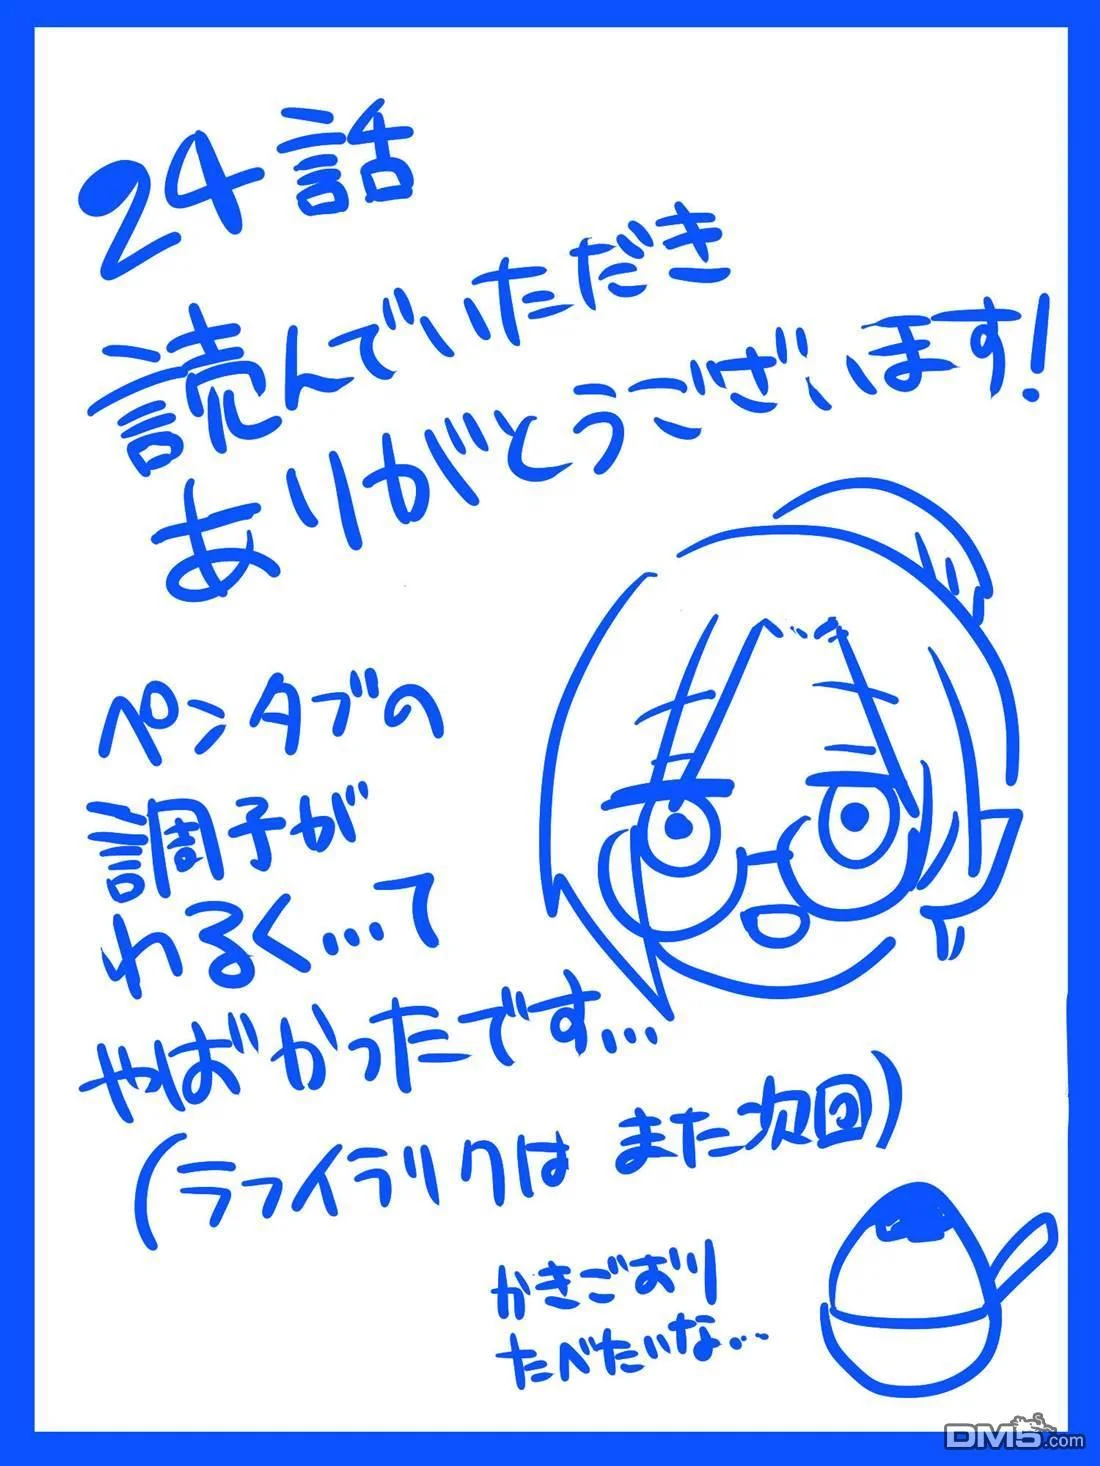 24話
読んでいただき
ありがとうございます!
ペンタブの
調子が
わるく…て
やばかったです…
(ラフイラリクは また次回)
かきごおり
たべたいな…
DM5.com